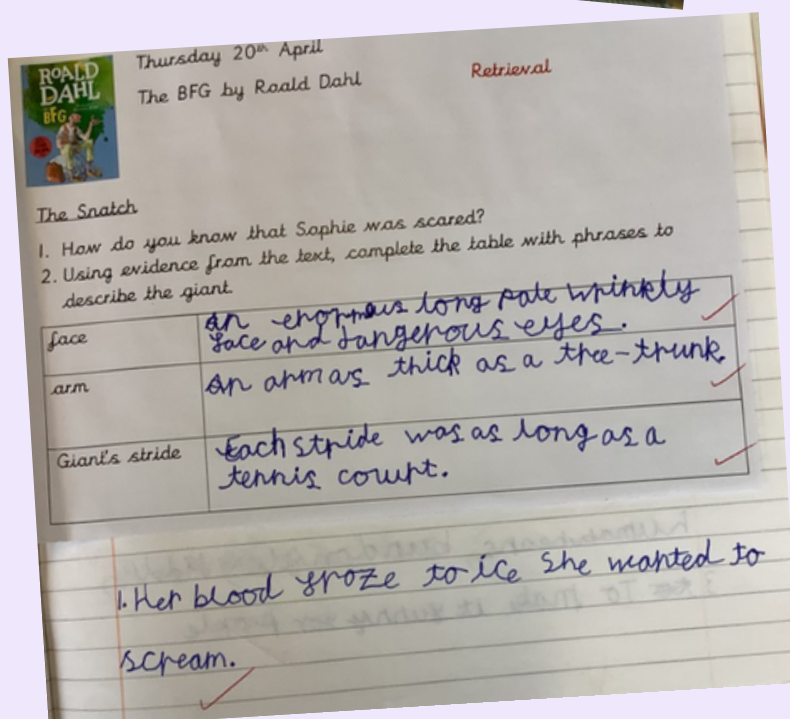 ROALD
DAHL
BFG
Thursday 20th April
The BFG by Roald Dahl
Retrieval
The Snatch
1. How do you know that Sophie was scared?
2. Using evidence from the text, complete the table with phrases to
describe the giant.
face
an enormous long pale wrinkly
face and dangerous eyes.
arm
an arm as thick as a tree-trunk.
Giant's stride
Each stride was as long as a
tennis court.
1. Her blood froze to ice She wanted to
scream.